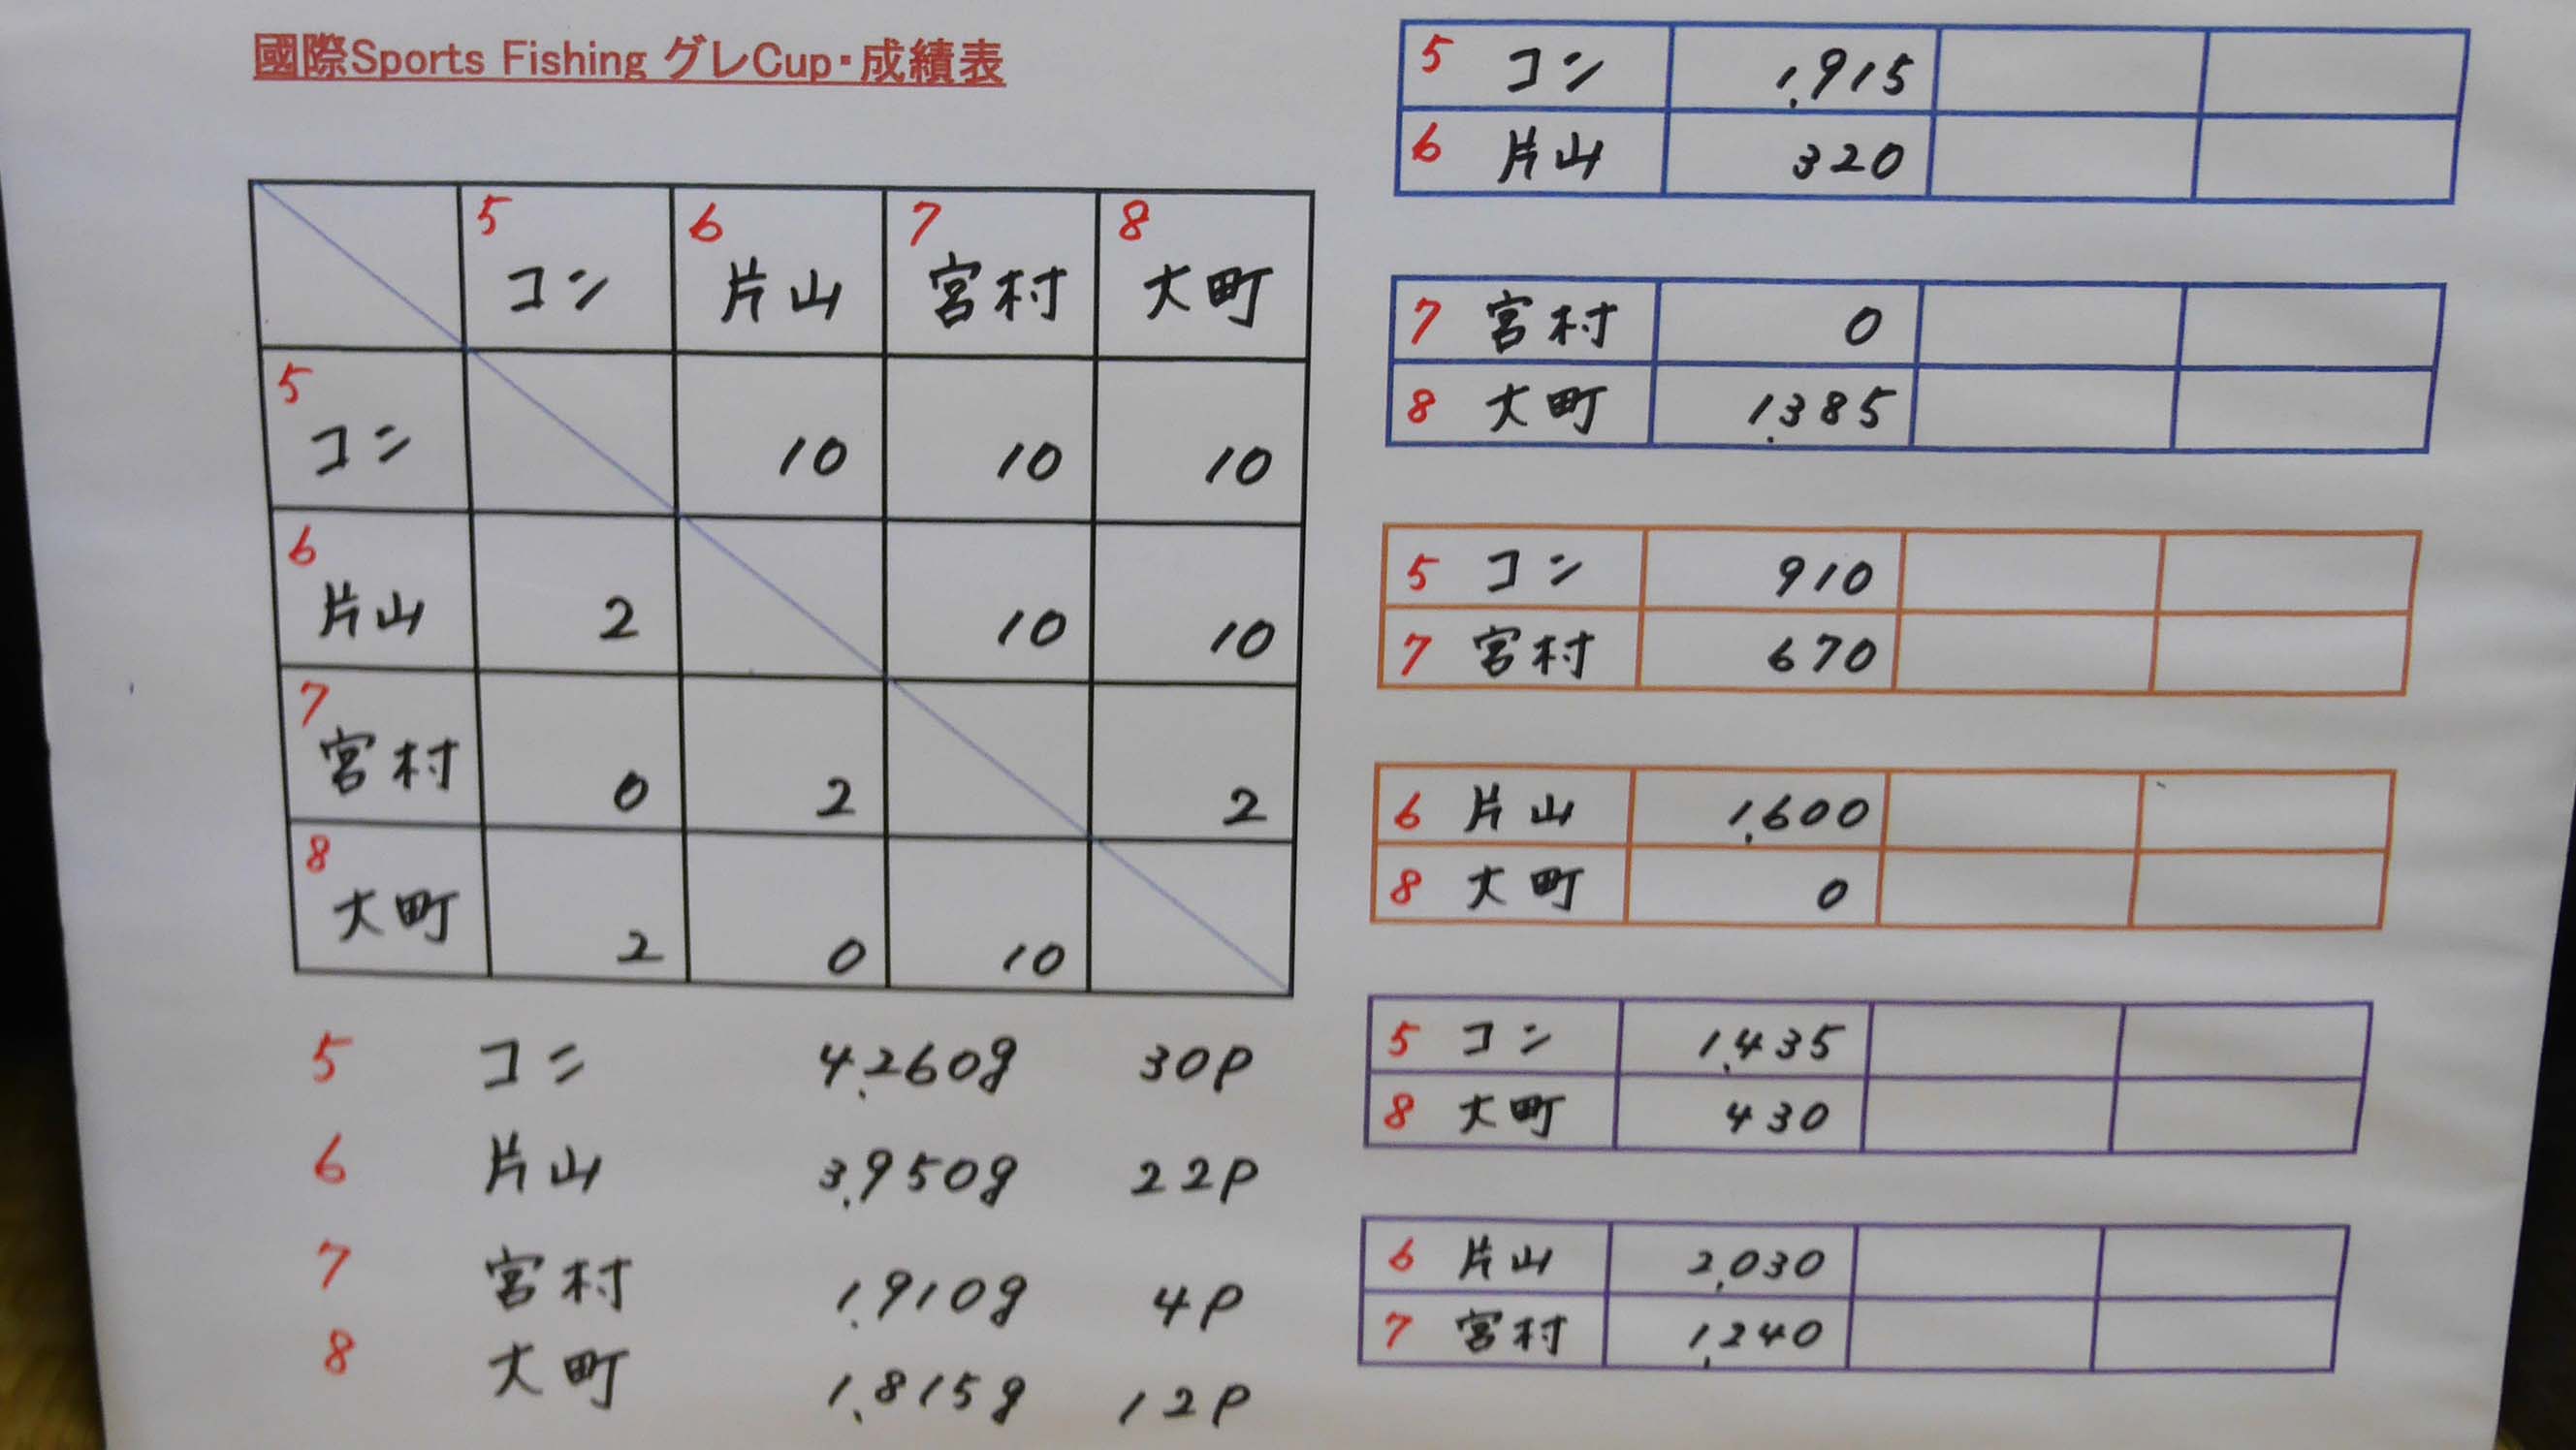 國際Sports Fishing グレCup・成績表
5 コン 6 片山 7 宮村 8 大町
5 コン 10 10 10
6 片山 2 10 10
7 宮村 0 2 2
8 大町 2 0 10
5 コン 4,260g 30P
6 片山 3,950g 22P
7 宮村 1,910g 4P
8 大町 1,815g 12P
5 コン 1,915
6 片山 320
7 宮村 0
8 大町 1,385
5 コン 910
7 宮村 670
6 片山 1,600
8 大町 0
5 コン 1,435
8 大町 430
6 片山 2,030
7 宮村 1,240